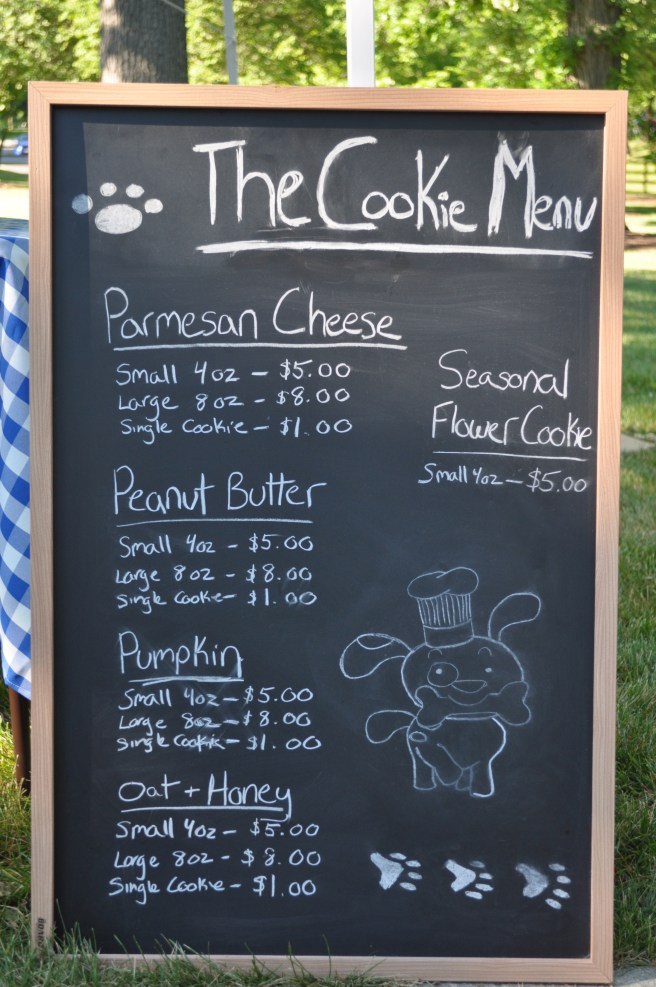 The Cookie Menu
Parmesan Cheese
Small 4oz - $5.00
Large 8oz - $8.00
Single Cookie - $1.00
Peanut Butter
Small 4oz - $5.00
Large 8oz - $8.00
Single Cookie - $1.00
Pumpkin
Small 4oz - $5.00
Large 8oz - $8.00
Single Cookie - $1.00
Oat + Honey
Small 4oz - $5.00
Large 8oz - $8.00
Single Cookie - $1.00
Seasonal
Flower Cookie
Small 4oz - $5.00